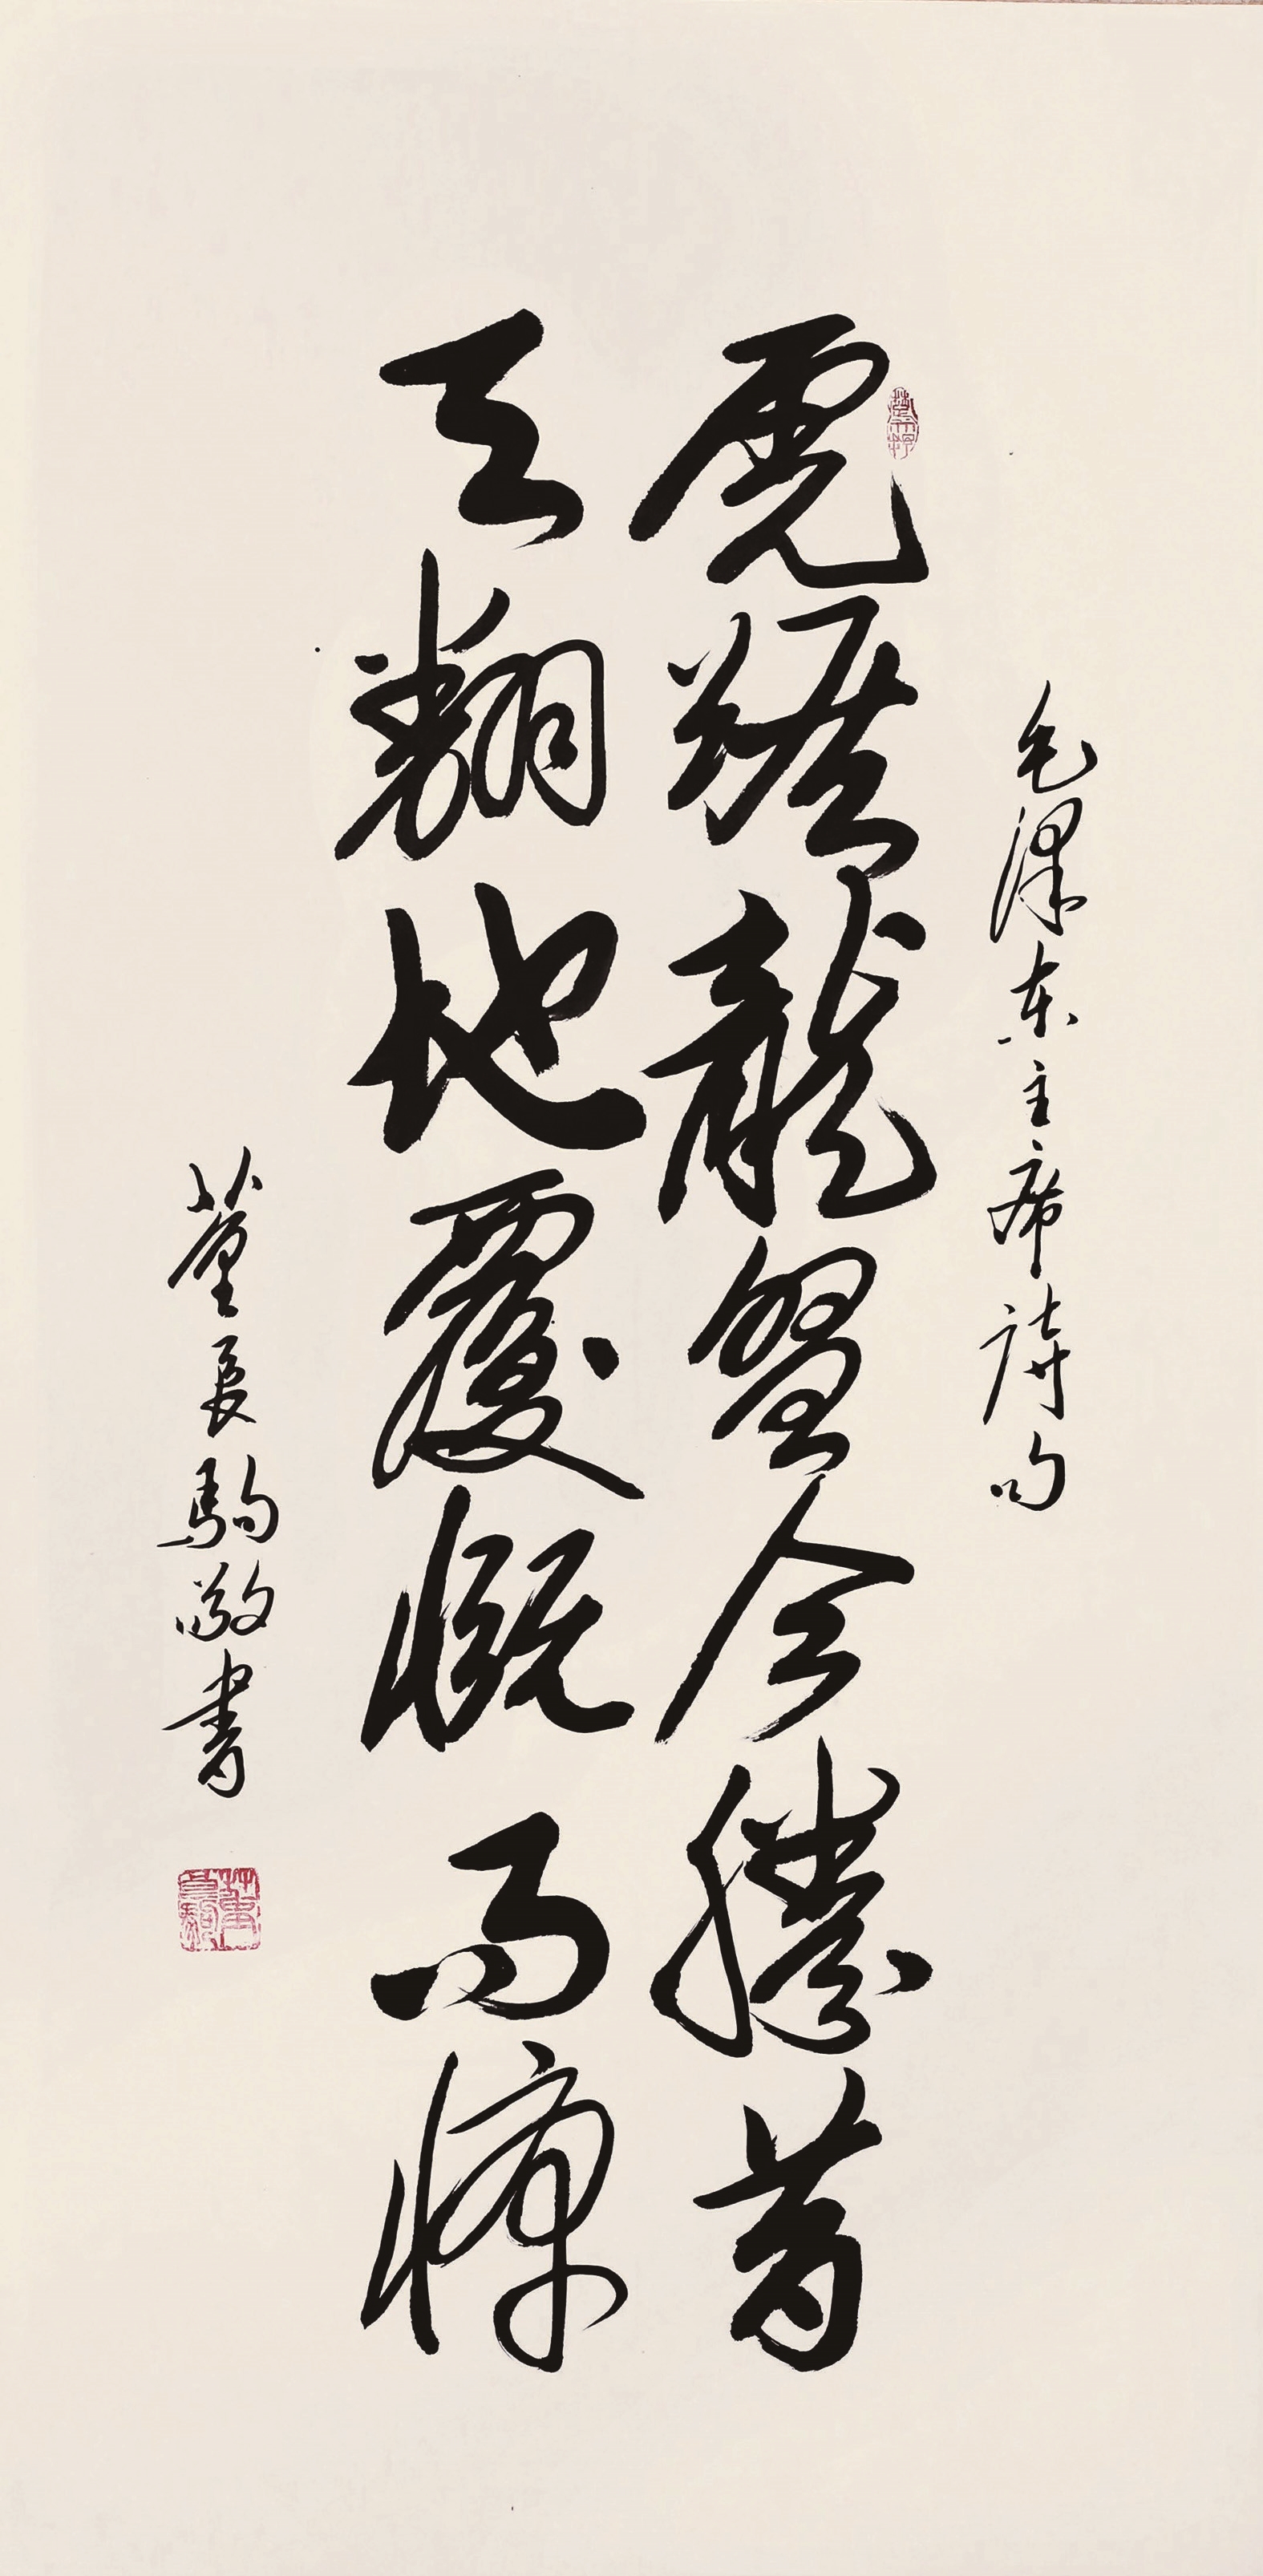 毛澤東主席詩句
虎踞龍盤今勝昔
天翻地覆慨而慷
董良駒敬書